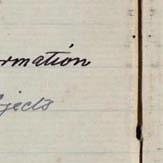 rmation
jects